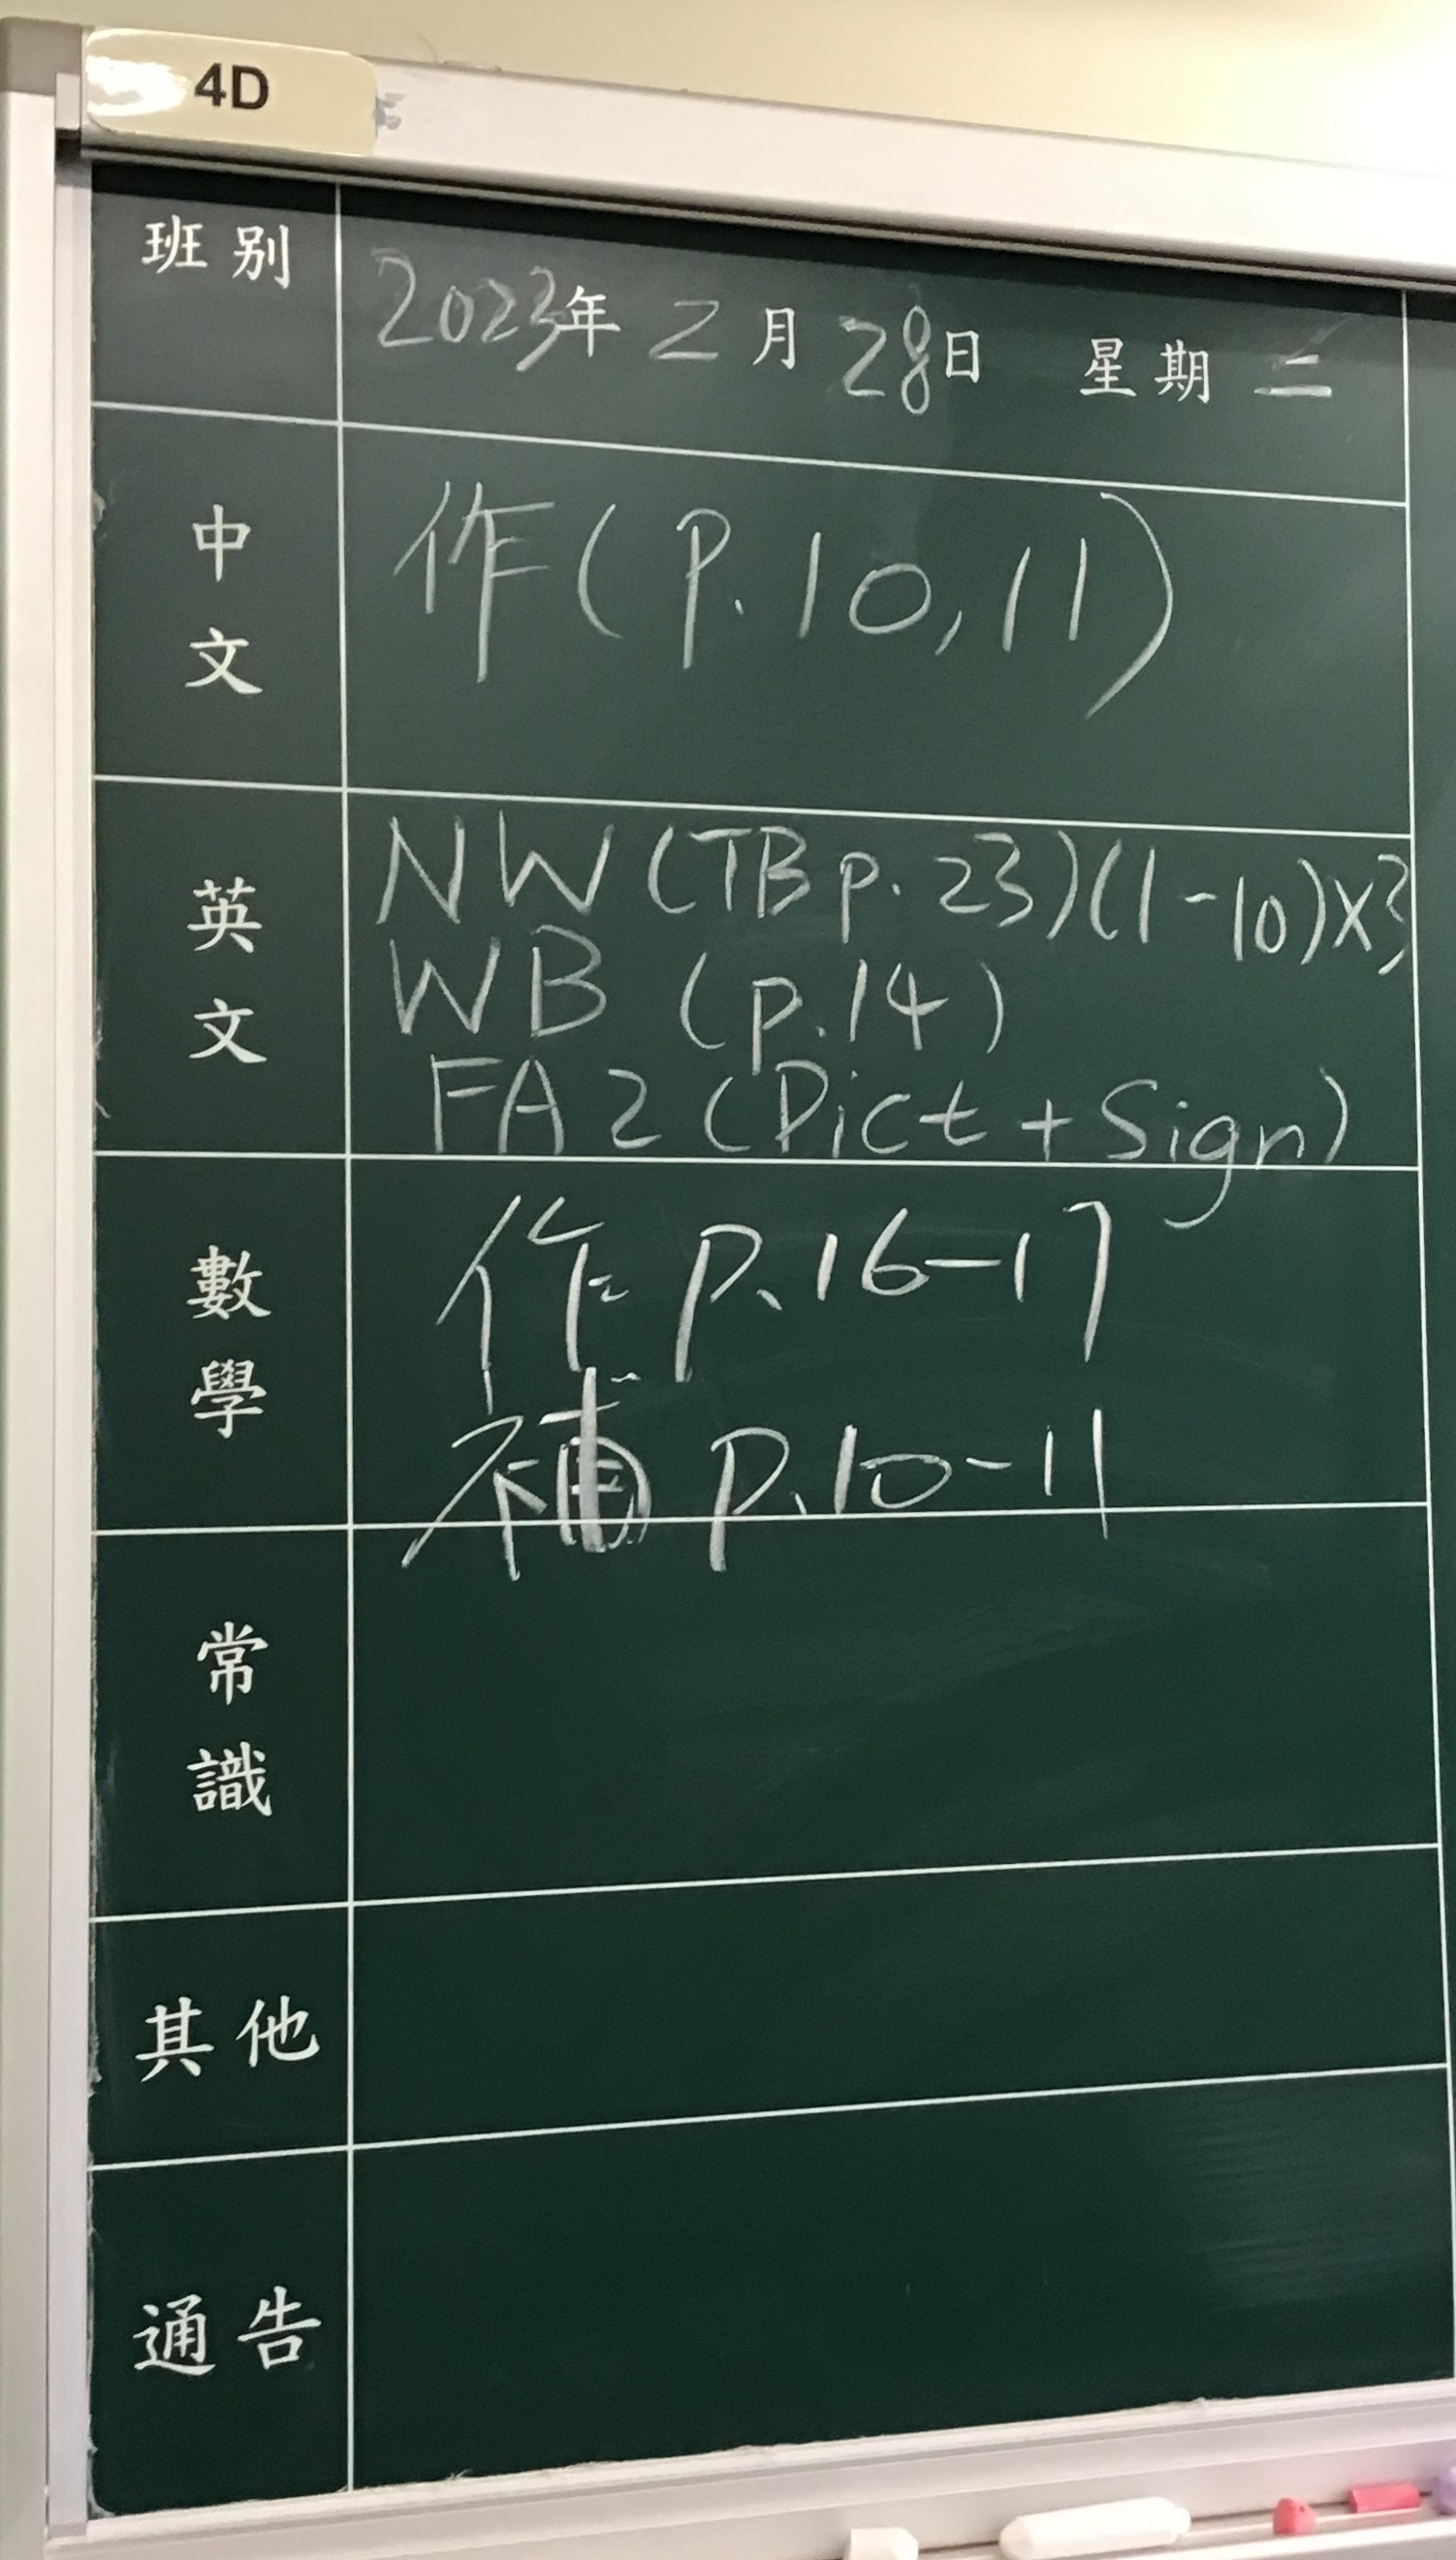 4D
班別 2023年 2月 28日 星期 二
中文 作(P.10,11)
英文 NW(TB p.23)(1-10)x3
WB (p.14)
FA2(Dict + Sign)
數學 作 P.16-17
補 P.10-11
常識
其他
通告